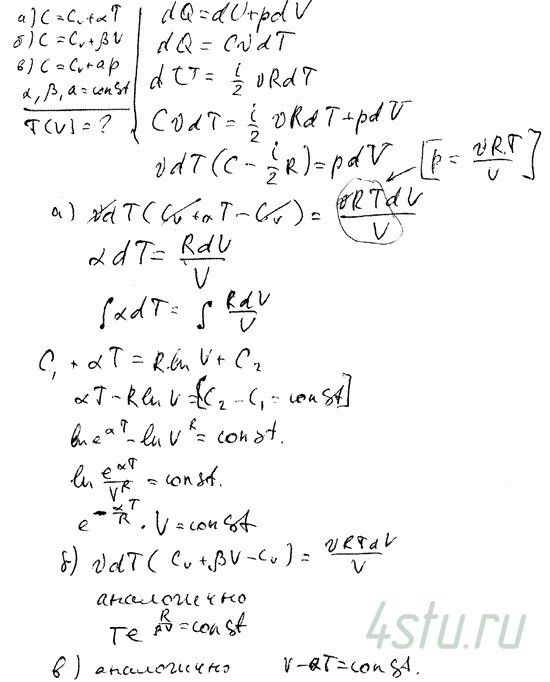 а) C = Cᵥ + αT
б) C = Cᵥ + βV
в) C = Cᵥ + ap
α, β, a = const
T(V) = ?
dQ = dU + pdV
dQ = CνdT
dU = i/2 νRdT
CνdT = i/2 νRdT + pdV
νdT(C − i/2 R) = pdV [p = νRT/V]
а) νdT(Cᵥ + αT − Cᵥ) = νRTdV/V
αdT = RdV/V
∫αdT = ∫RdV/V
C₁ + αT = R ln V + C₂
αT − R ln V = [C₂ − C₁ = const]
ln e^(αT) − ln V^R = const.
ln e^(αT)/V^R = const.
e^(−αT/R) · V = const
б) νdT(Cᵥ + βV − Cᵥ) = νRTdV/V
аналогично
Te^(R/βV) = const
в) аналогично V − aT = const.
4stu.ru